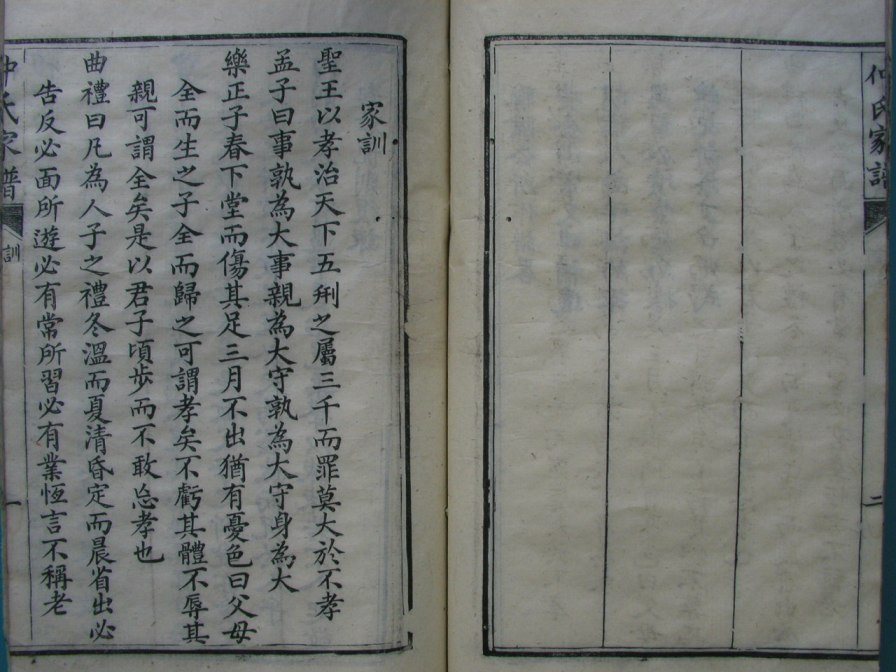 仲氏家譜
二
家訓
聖王以孝治天下五刑之屬三千而罪莫大於不孝
孟子曰事孰為大事親為大守孰為大守身為大
樂正子春下堂而傷其足三月不出猶有憂色曰父母
全而生之子全而歸之可謂孝矣不虧其體不辱其
親可謂全矣是以君子頃步而不敢忘孝也
曲禮曰凡為人子之禮冬溫而夏清昏定而晨省出必
告反必面所遊必有常所習必有業恆言不稱老
仲氏家譜
訓
一